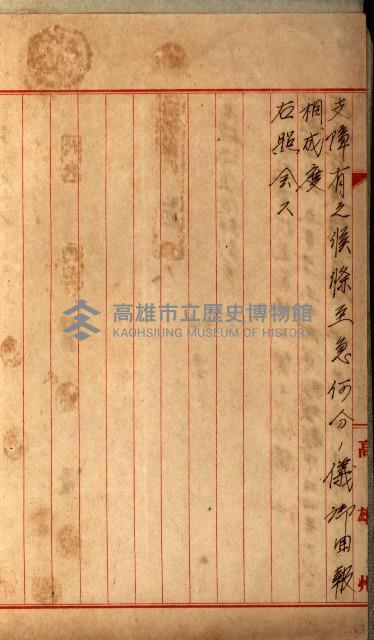 支障有之候條至急何分ノ儀御回報
相成度
右照会ス
高雄州
高雄市立歷史博物館
KAOHSIUNG MUSEUM OF HISTORY